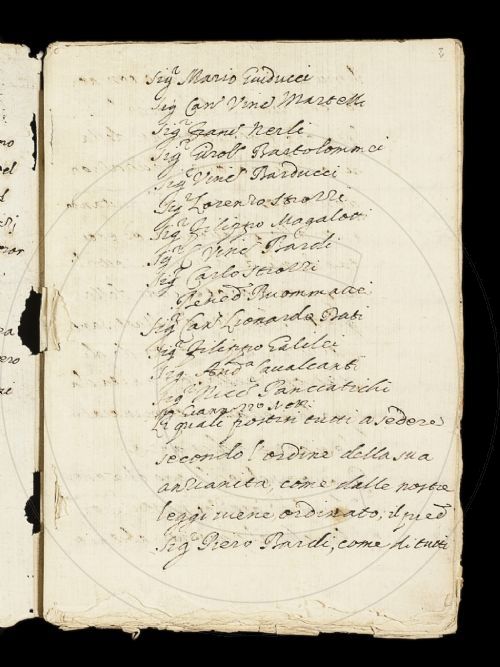 2
Sig.r Mario Guiducci
Sig Can.co Vinc.o Martelli
Sig.r Nerli
Sig.r Bartolommei
Sig.r Vinc.o Barducci
Sig.r Lorenzo Strozzi
Sig.r Filippo Magalotti
Sig.r Vinc.o Bardi
Sig.r Carlo Strozzi
Bened.o Buommattei
Sig.r Can.co Lionardo Dati
Sig.r Filippo Galilei
Sig.r And.a Cavalcanti
Sig.r Nicc.o Panciatichi
Neri
Li quali postisi tutti a sedere
secondo l'ordine della sua
anzianità, come dalle nostre
leggi viene ordinato, il pred.o
Sig.r Piero Bardi, come di tutti